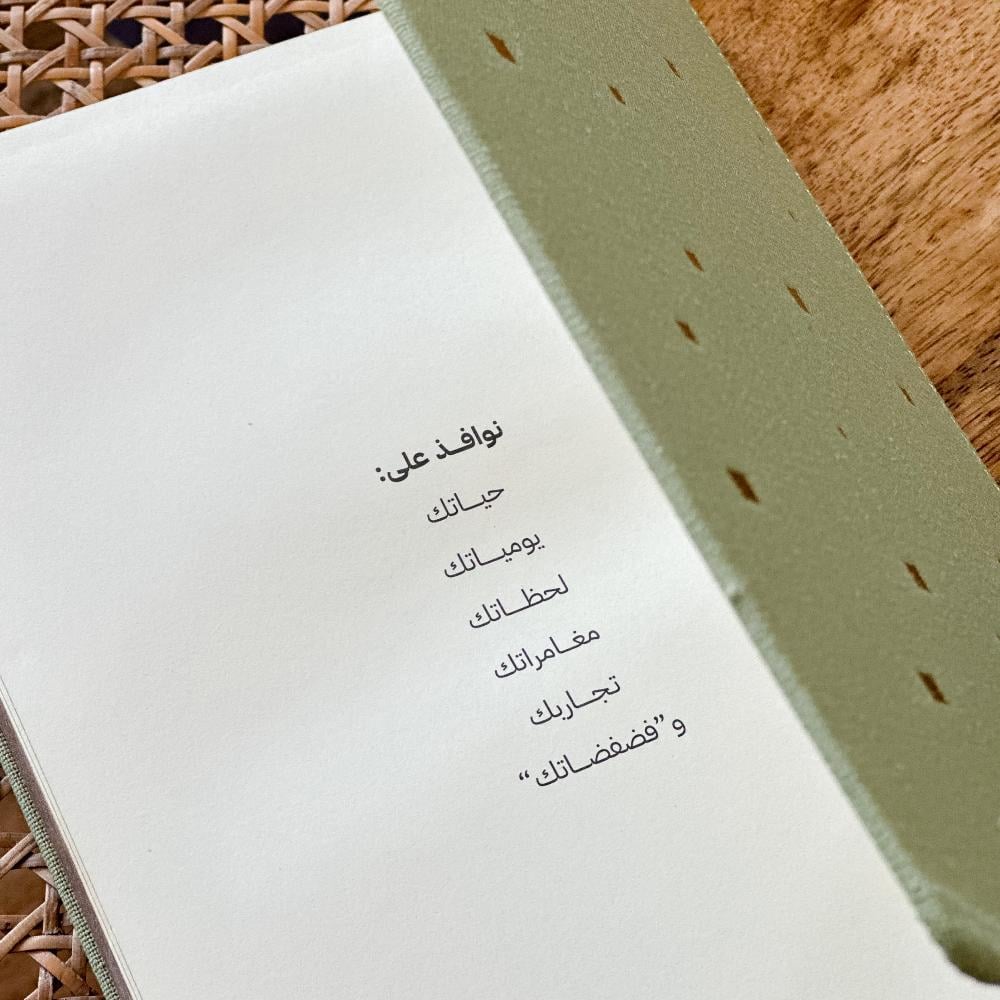 نوافـذ على:
حيـاتك
يوميـاتك
لحظـاتك
مغـامراتك
تجـاربك
و ”فضفضـاتك“